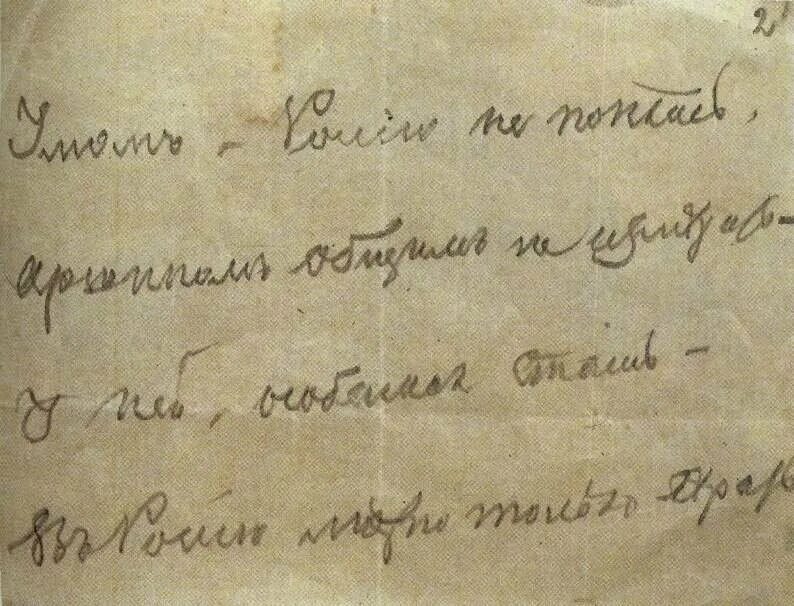 2
Умомъ – Россію не понять,
Аршиномъ общимъ не измѣрить –
У ней, особенная стать –
Въ Россію можно только вѣрить